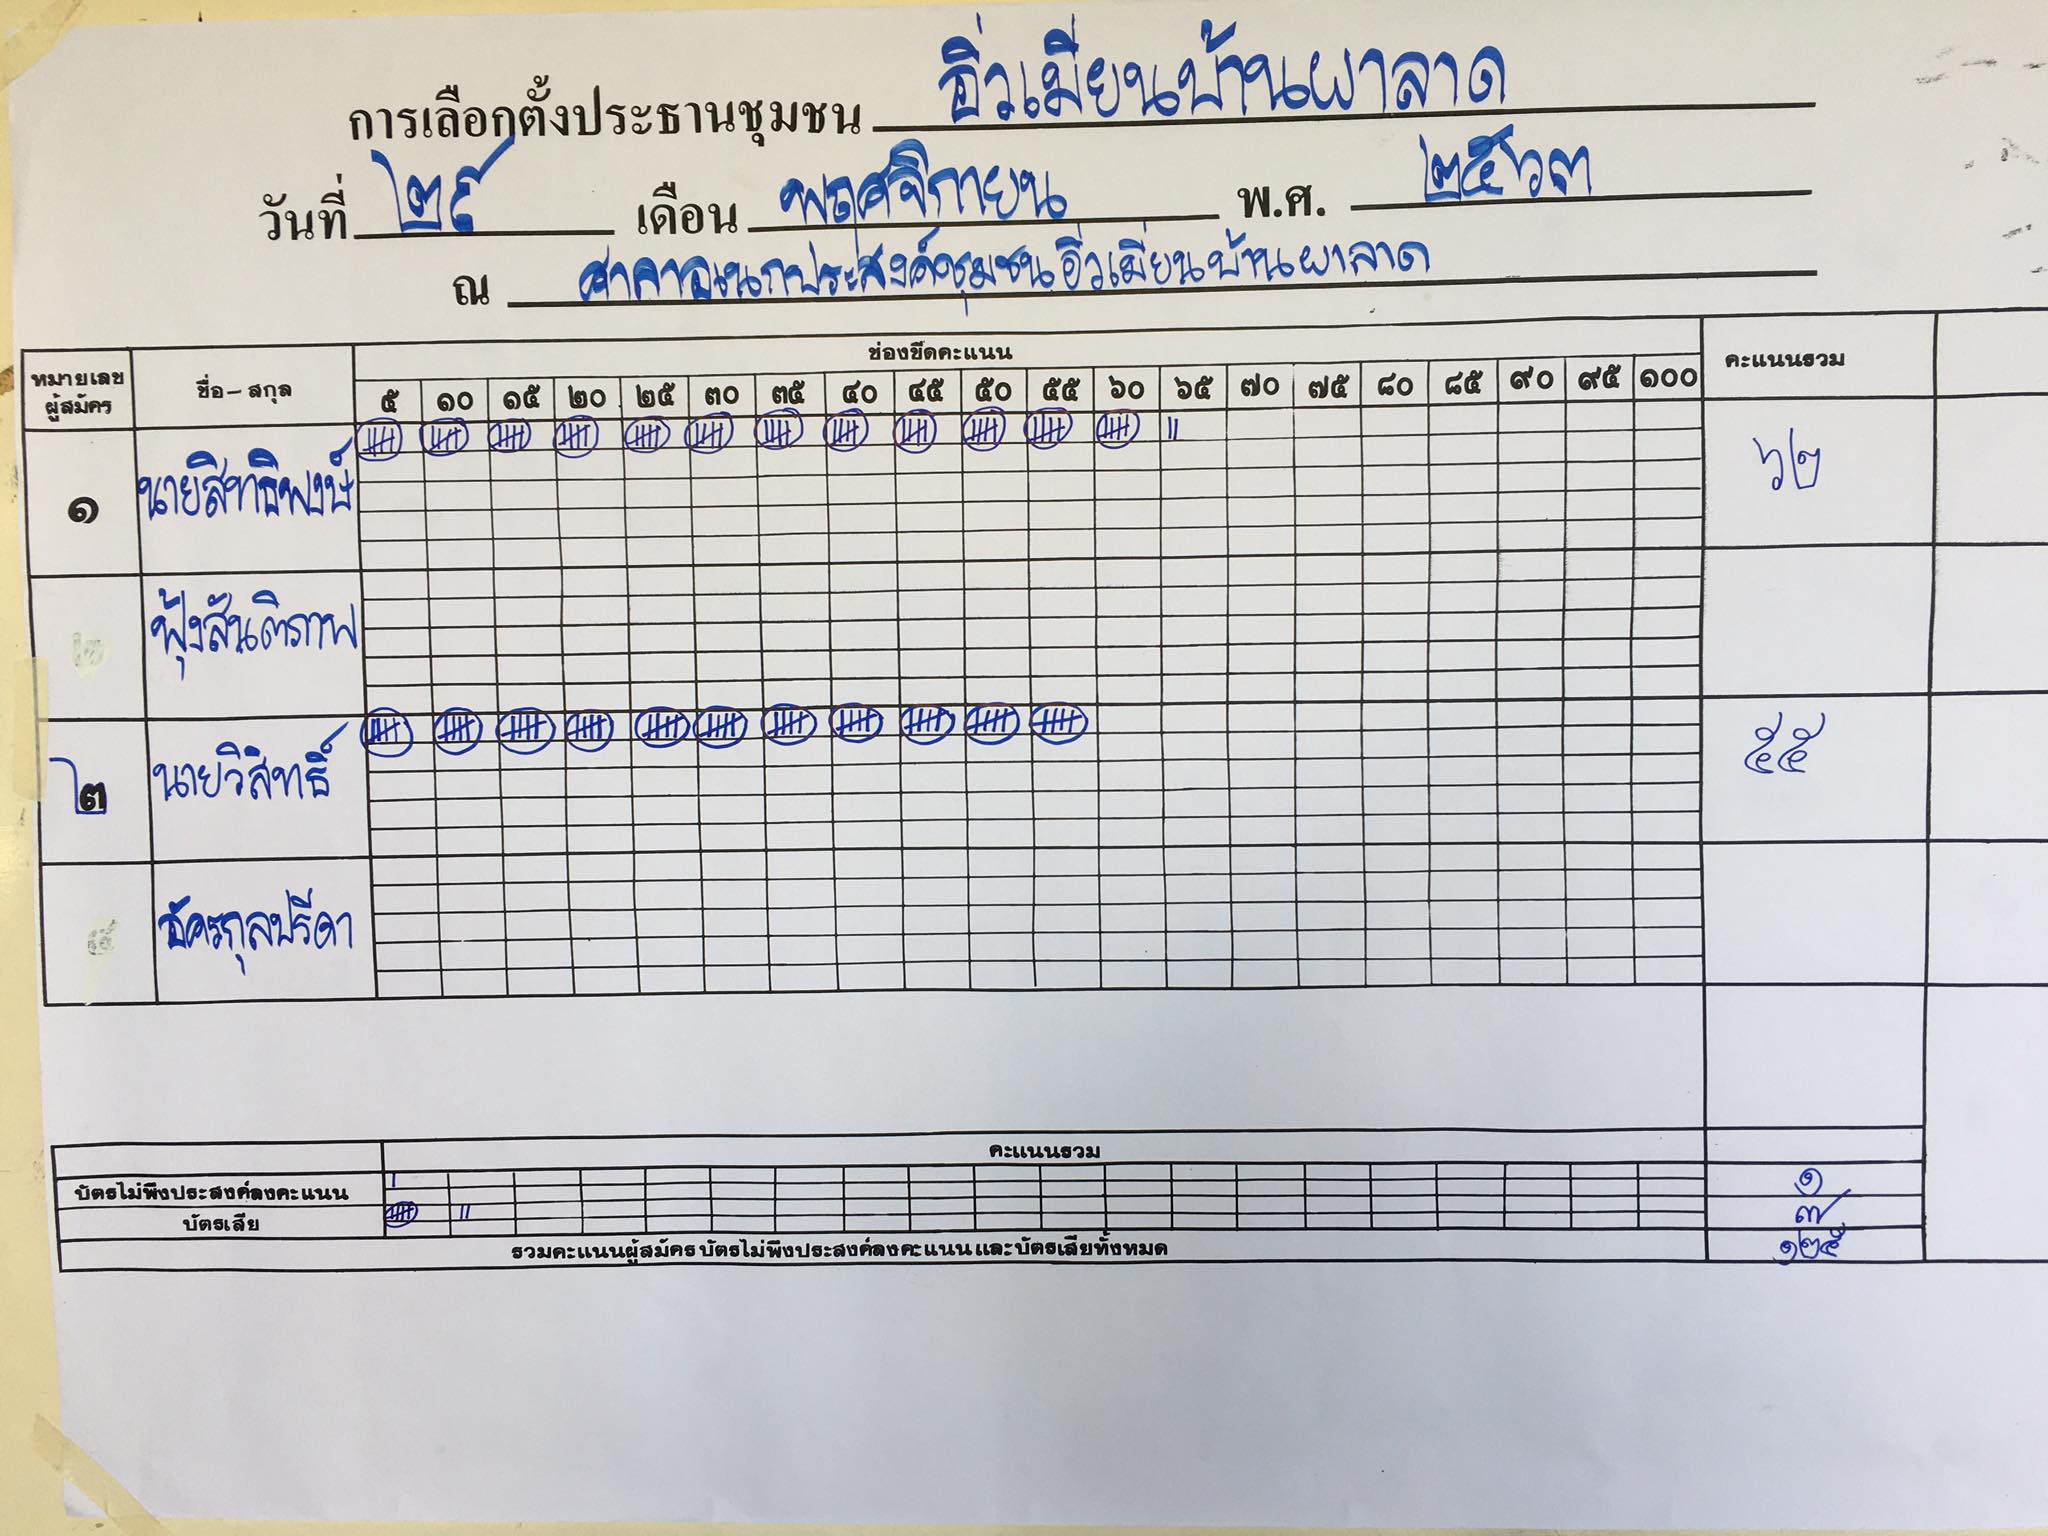 การเลือกตั้งประธานชุมชน อิ่วเมี่ยนบ้านผาลาด
วันที่ ๒๙ เดือน พฤศจิกายน พ.ศ. ๒๕๖๓
ณ ศาลาอเนกประสงค์ชุมชนอิ่วเมี่ยนบ้านผาลาด
หมายเลขผู้สมัคร ชื่อ-สกุล ช่องขีดคะแนน คะแนนรวม
๕ ๑๐ ๑๕ ๒๐ ๒๕ ๓๐ ๓๕ ๔๐ ๔๕ ๕๐ ๕๕ ๖๐ ๖๕ ๗๐ ๗๕ ๘๐ ๘๕ ๙๐ ๙๕ ๑๐๐
๑ นายสิทธิพงษ์ ๖๒
ฟุ้งสันติภาพ
๒ นายวิสิทธิ์ ๕๕
อัครกุลปรีดา
คะแนนรวม
บัตรไม่พึงประสงค์ลงคะแนน ๑
บัตรเสีย ๗
รวมคะแนนผู้สมัคร บัตรไม่พึงประสงค์ลงคะแนน และบัตรเสียทั้งหมด ๑๒๕